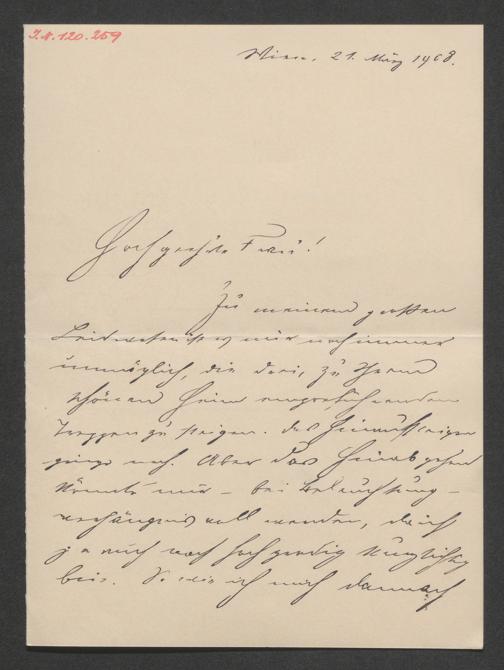 I.N. 120.259
Wien, 21. März 1908.
Hochgeehrte Frau!
Zu meinem großen
Leidwesen ist es mir noch immer
unmöglich, die drei, zu Ihrem
schönen Heim emporführenden
Treppen zu steigen. Das Hinaufsteigen
ginge noch. Aber das Hinabgehen
könnte mir – bei Beleuchtung –
verhängnisvoll werden, da ich
ja auch noch hochgradig kurzsichtig
bin. So wie ich mich dennoch